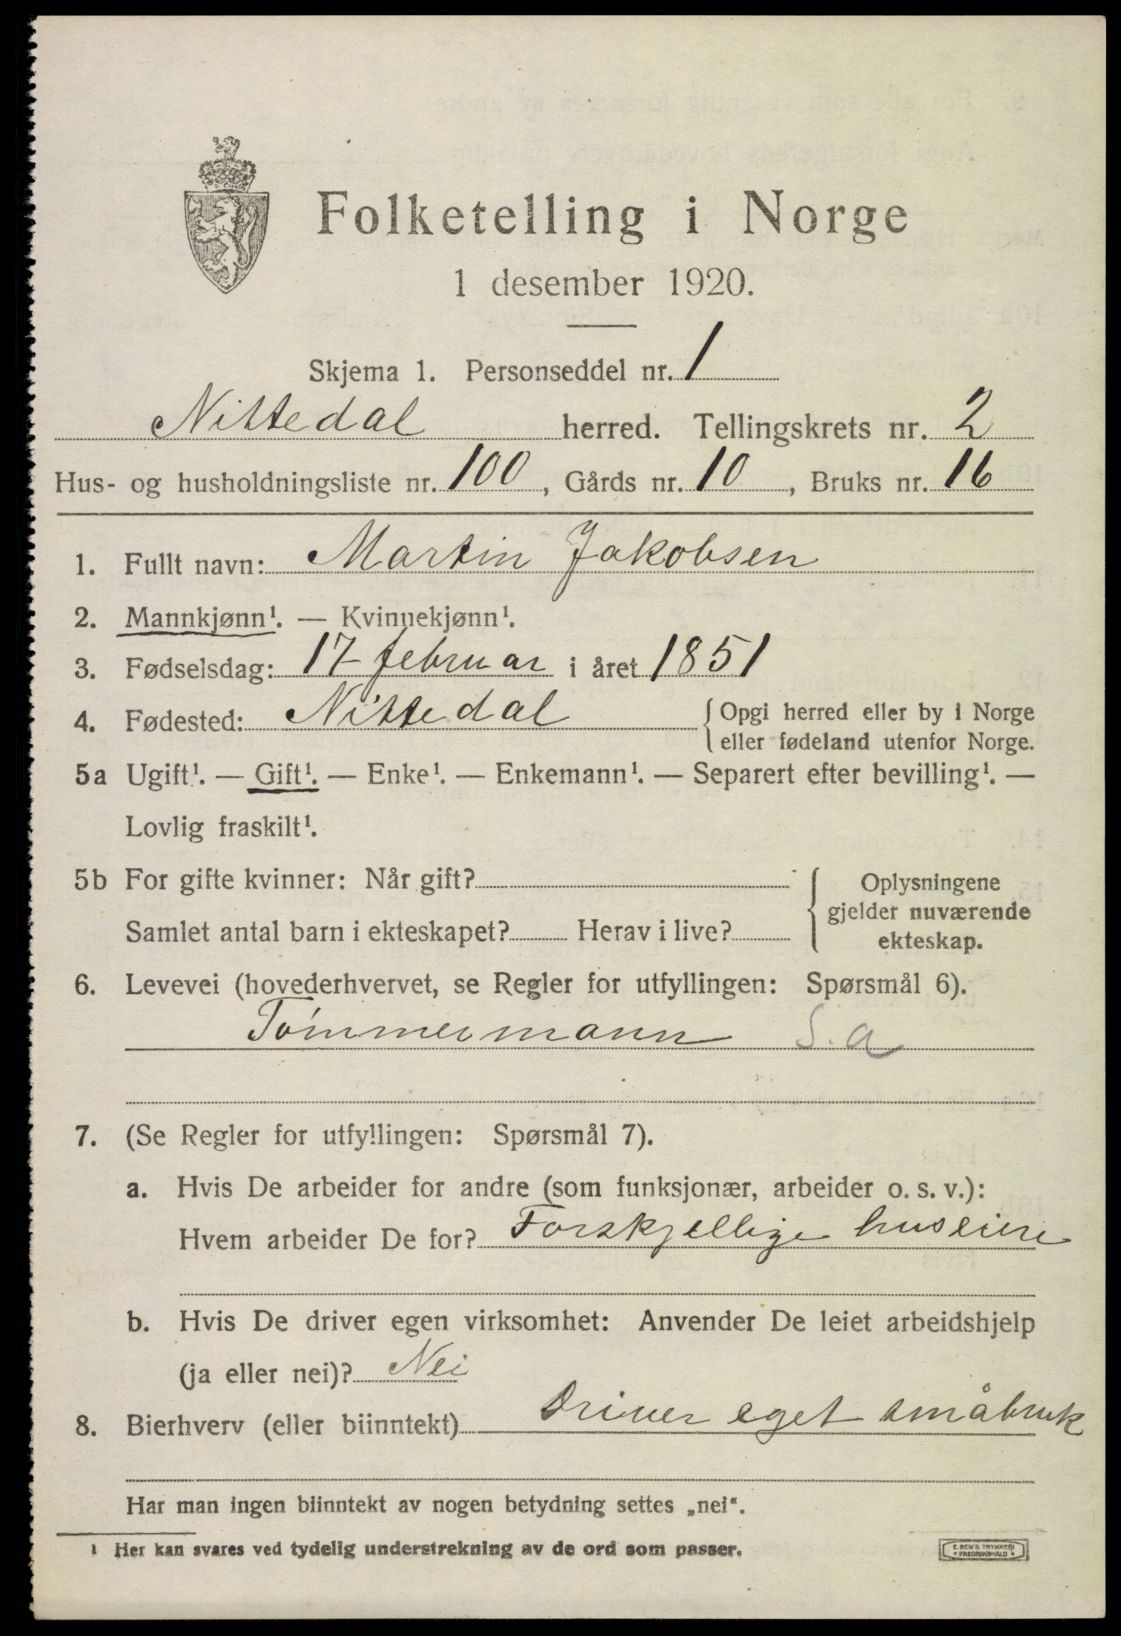 Folketelling i Norge
1 desember 1920.
Skjema 1. Personseddel nr. 1
Nittedal herred. Tellingskrets nr. 2
Hus- og husholdningsliste nr. 100, Gårds nr. 10, Bruks nr. 16
1. Fullt navn: Martin Jakobsen
2. Mannkjønn¹. — Kvinnekjønn¹.
3. Fødselsdag: 17 februar i året 1851
4. Fødested: Nittedal {Opgi herred eller by i Norge
eller fødeland utenfor Norge.
5a Ugift¹. — Gift¹. — Enke¹. — Enkemann¹. — Separert efter bevilling¹. —
Lovlig fraskilt¹.
5b For gifte kvinner: Når gift?
Samlet antal barn i ekteskapet? Herav i live?
{Oplysningene
gjelder nuværende
ekteskap.
6. Levevei (hovederhvervet, se Regler for utfyllingen: Spørsmål 6).
Tømmermann S.a
7. (Se Regler for utfyllingen: Spørsmål 7).
a. Hvis De arbeider for andre (som funksjonær, arbeider o. s. v.):
Hvem arbeider De for? Forskjellige huseiere
b. Hvis De driver egen virksomhet: Anvender De leiet arbeidshjelp
(ja eller nei)? Nei
8. Bierhverv (eller biinntekt) Driver eget småbruk
Har man ingen biinntekt av nogen betydning settes „nei“.
¹ Her kan svares ved tydelig understrekning av de ord som passer.
E. SEM'S TRYKKERI
FREDRIKSHALD